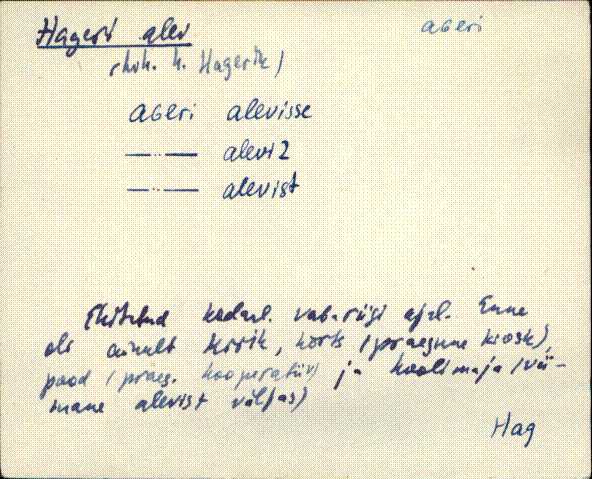 Hageri alev
aGeri
(koh. k. Hagerik)
aGeri alevisse
—··— aleviZ
—··— alevist
Ehitatud kodanl. vabariigi ajal. Enne
oli ainult kirik, kõrts (praegune kiosk),
pood (praeg. kooperatiiv) ja koolimaja (vii-
mane alevist väljas)
Hag